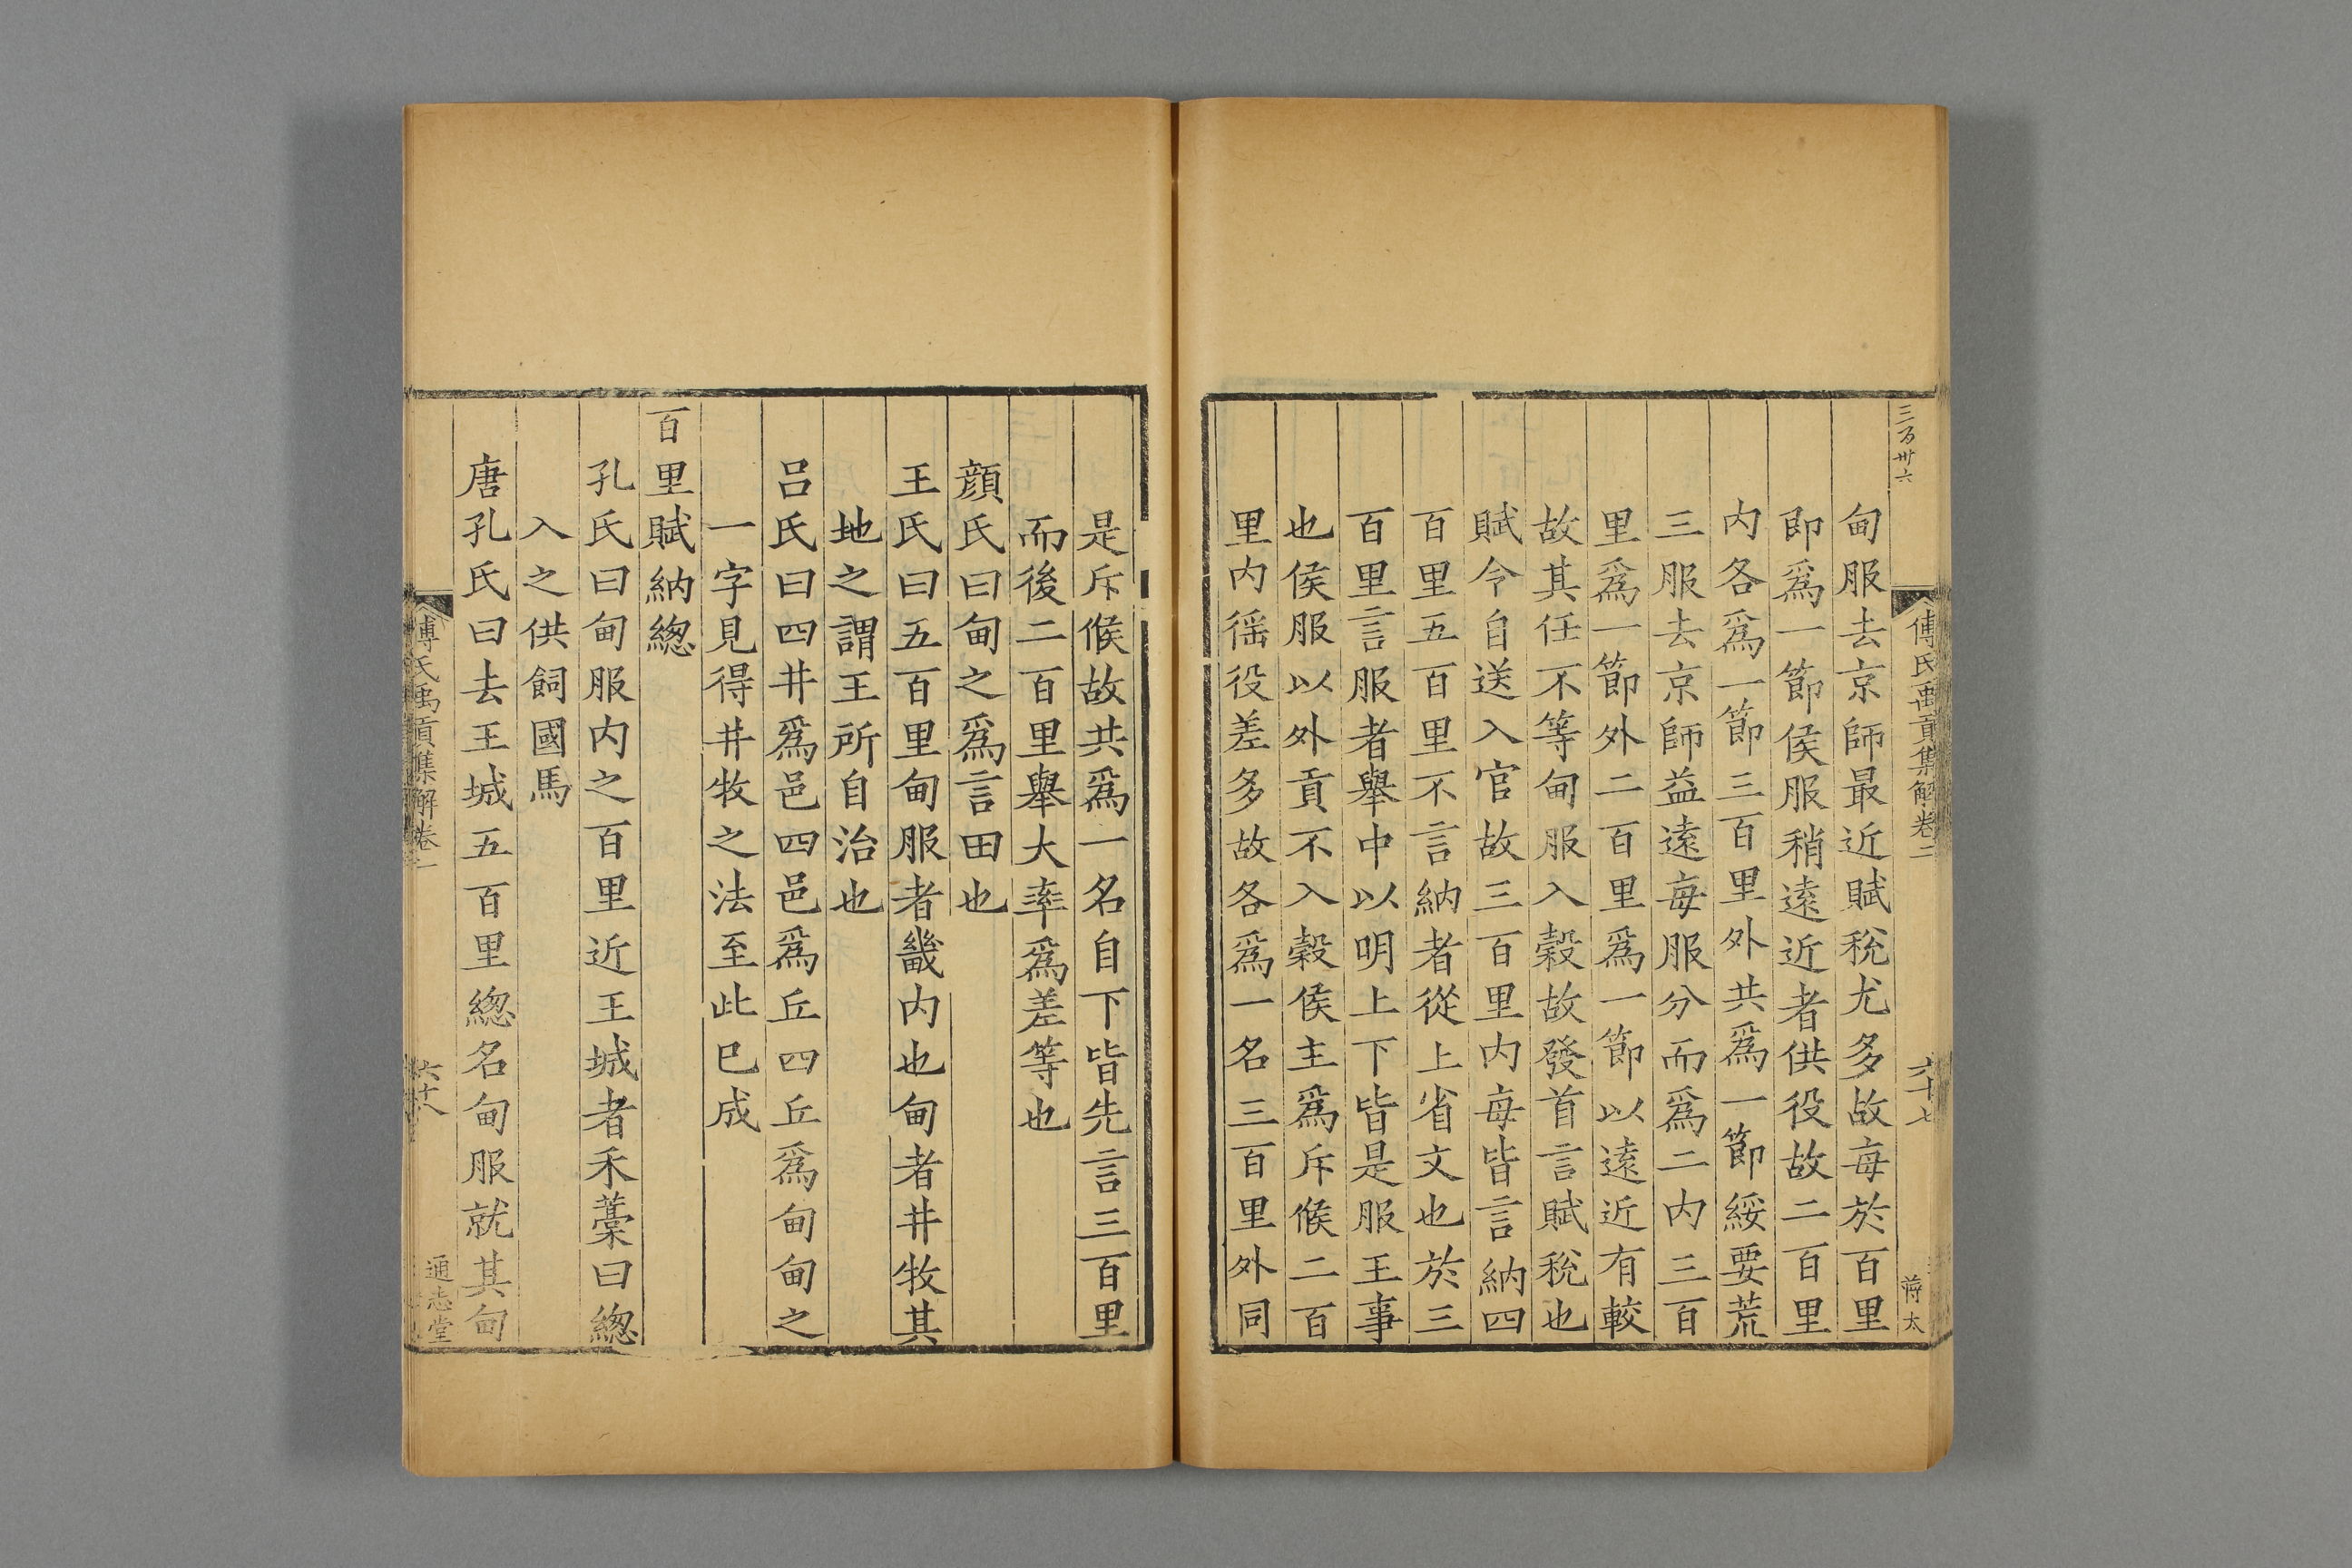 三万卅六
傅氏禹貢集解卷二
六十七
蔣太
甸服去京師最近賦稅尤多故每於百里
即爲一節侯服稍遠近者供役故二百里
内各爲一節三百里外共爲一節綏要荒
三服去京師益遠每服分而爲二内三百
里爲一節外二百里爲一節以遠近有較
故其任不等甸服入穀故發首言賦稅也
賦令自送入官故三百里内每皆言納四
百里五百里不言納者從上省文也於三
百里言服者舉中以明上下皆是服王事
也侯服以外貢不入穀侯主爲斥候二百
里内徭役差多故各爲一名三百里外同
是斥候故共爲一名自下皆先言三百里
而後二百里舉大率爲差等也
顏氏曰甸之爲言田也
王氏曰五百里甸服者畿内也甸者井牧其
地之謂王所自治也
呂氏曰四井爲邑四邑爲丘四丘爲甸甸之
一字見得井牧之法至此已成
百里賦納緫
孔氏曰甸服内之百里近王城者禾藁曰緫
入之供飼國馬
唐孔氏曰去王城五百里緫名甸服就其甸
傅氏禹貢集解卷
六十八
通志堂